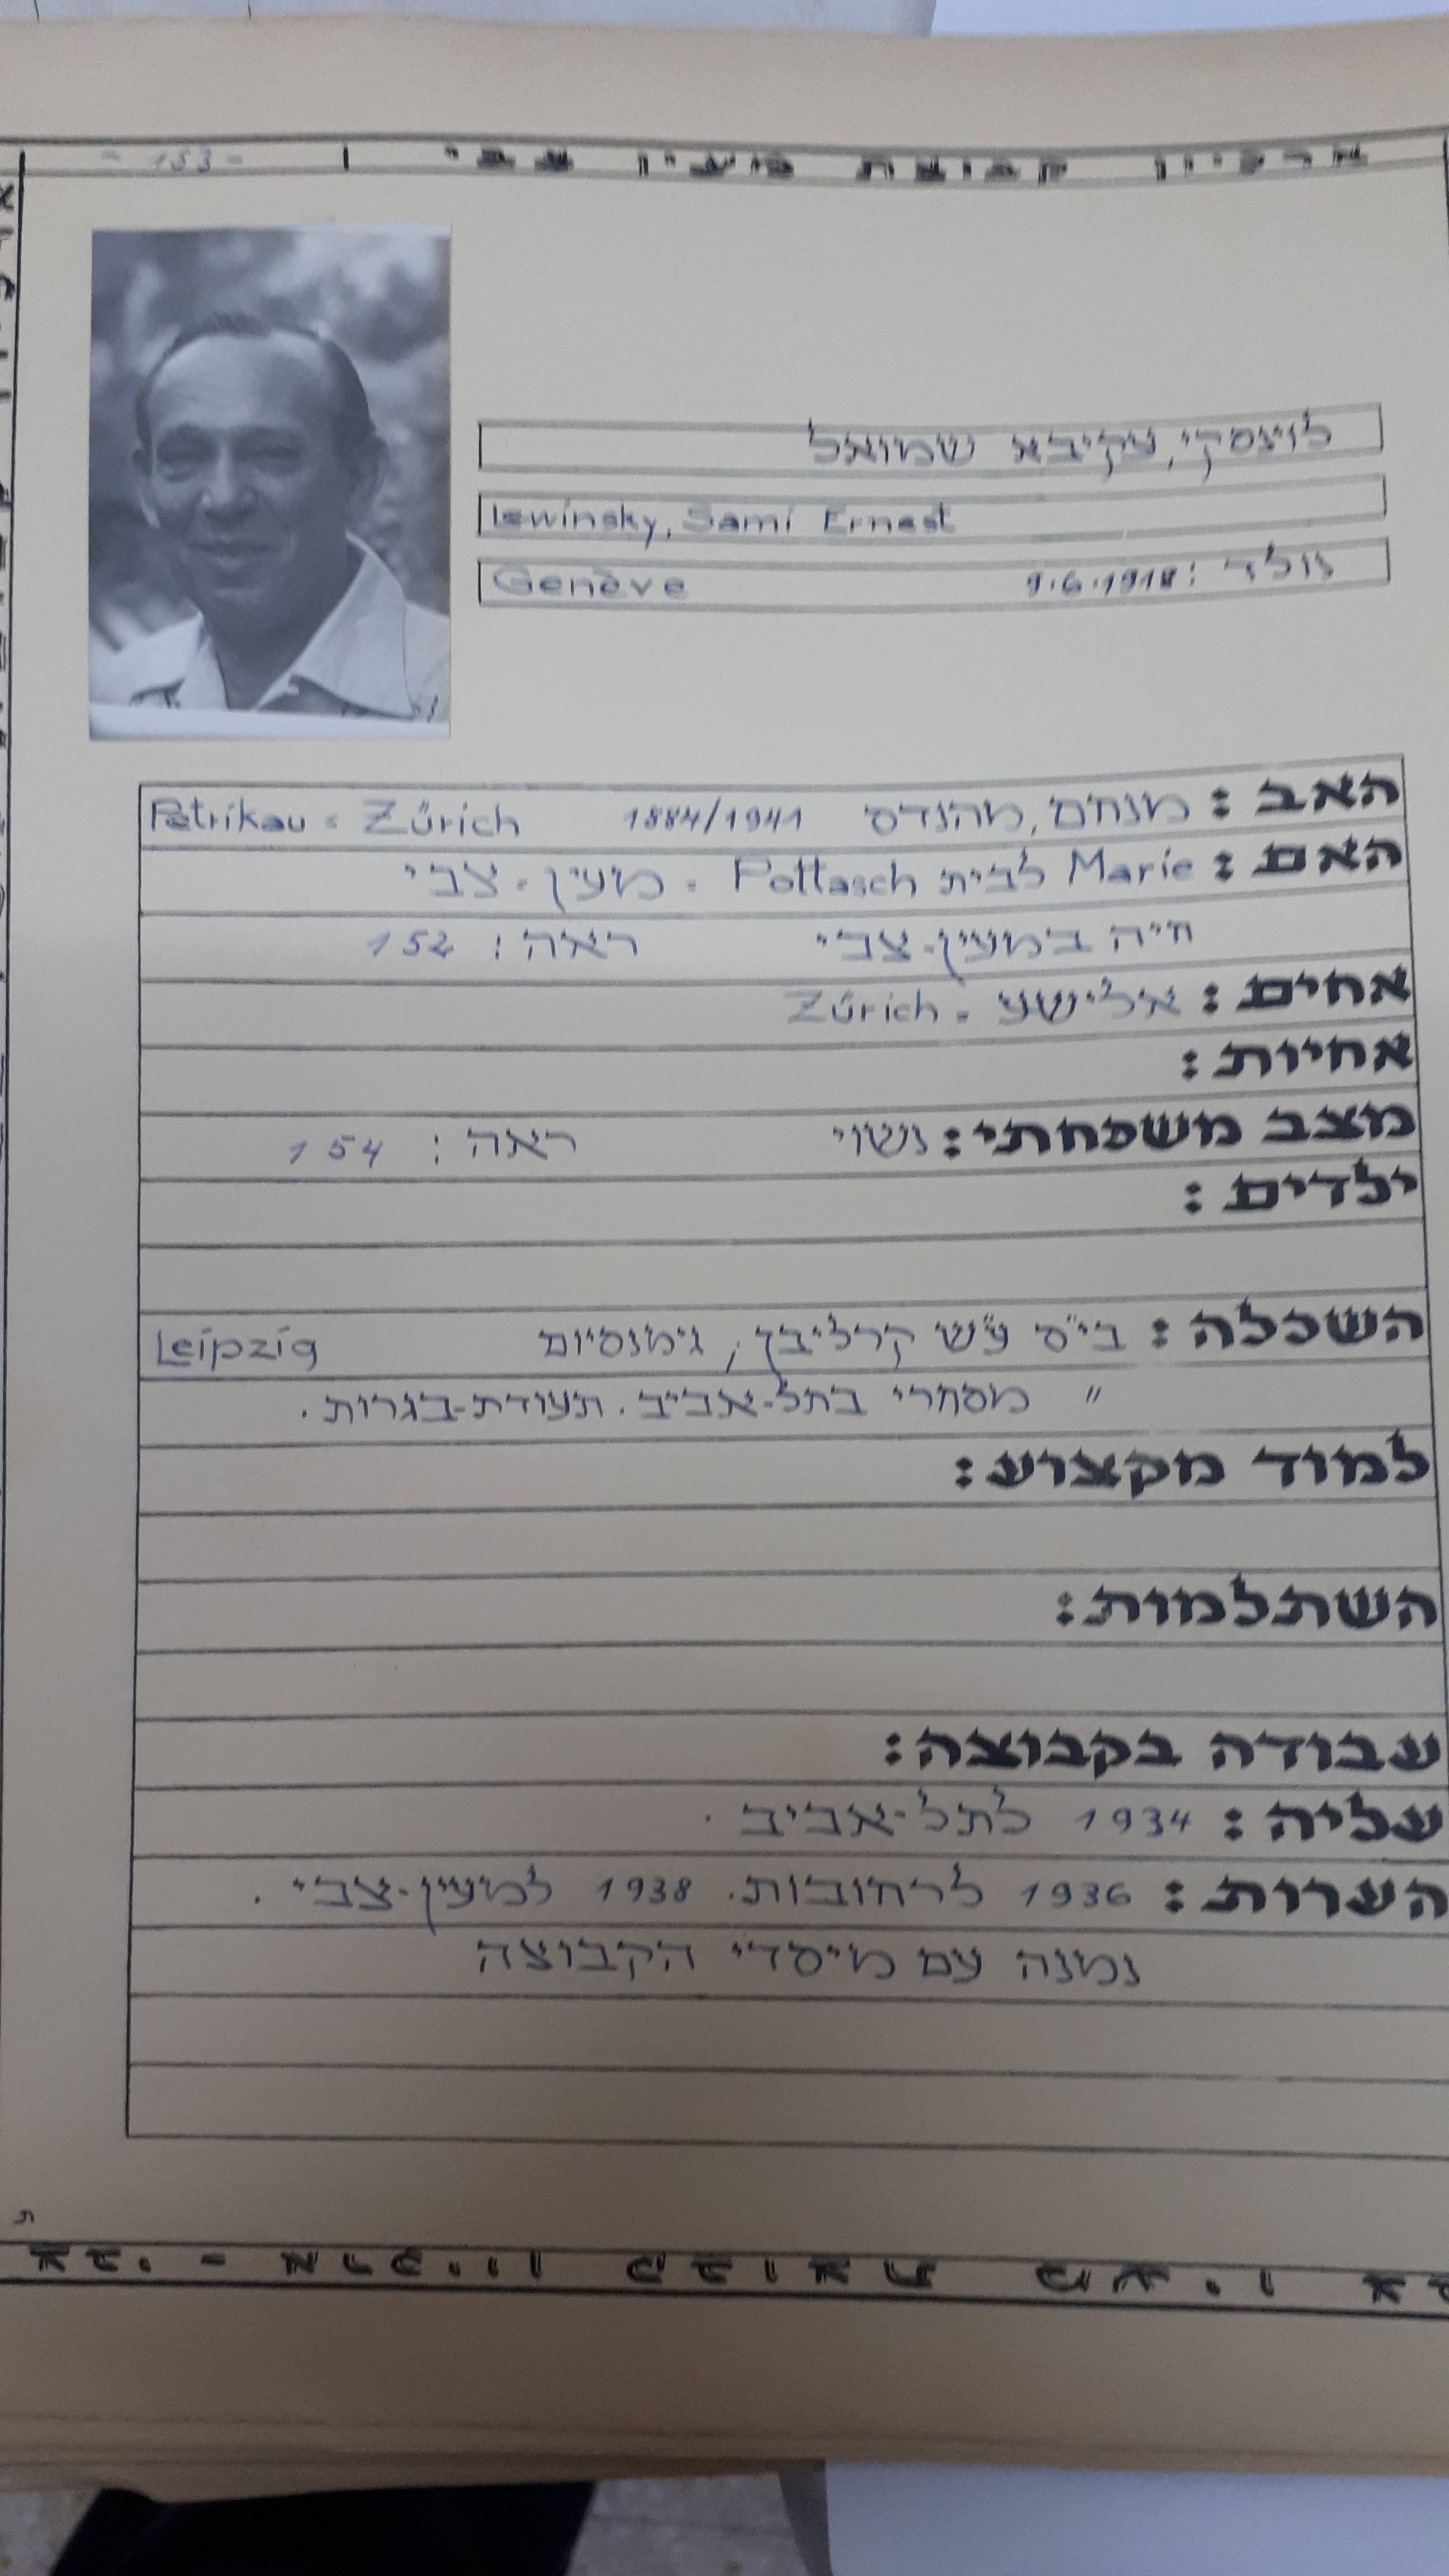 ארכיון קבוצת מעין צבי - 153 -
לוינסקי, עקיבא שמואל
Lewinsky, Sami Ernest
נולד: 9.6.1918 Genève
האב: מנחם, מהנדס 1884/1941 Petrikau - Zürich
האם: Marie לבית Pottasch - מעין-צבי
חיה במעין-צבי ראה: 152
אחים: אלישע - Zürich
אחיות:
מצב משפחתי: נשוי ראה: 154
ילדים:
השכלה: בי"ס ע"ש קרליבך, גימנסיום Leipzig
" מסחרי בתל-אביב. תעודת-בגרות.
למוד מקצוע:
השתלמות:
עבודה בקבוצה:
עליה: 1934 לתל-אביב.
הערות: 1936 לרחובות. 1938 למעין-צבי.
נמנה עם מיסדי הקבוצה